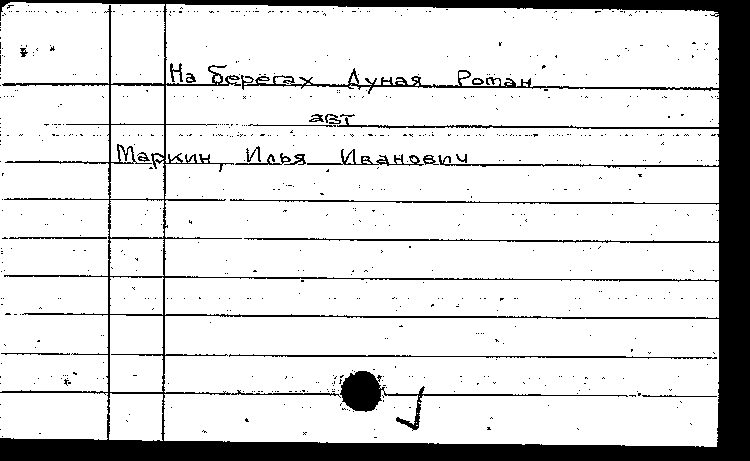 На берегах Дуная Роман
авт
Маркин, Илья Иванович